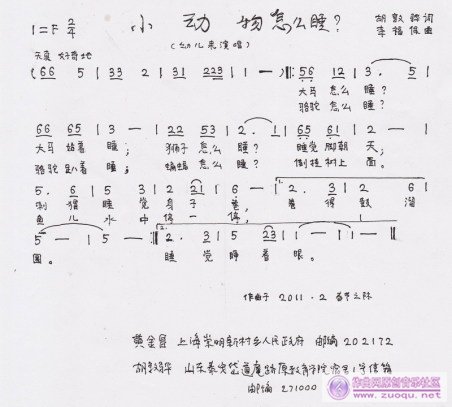 小动物怎么睡?
1=F 2/4
(幼儿表演唱)
胡敦骅 词
李福保 曲
天真 好奇地
(66 65 | 33 2 | 31 223 | 1 — ) |: 56 12 | 3. 5 |
大马怎么睡?
骆驼怎么睡?
66 65 | 3 — | 22 53 | 2. 1 | 65 61 | 2 — |
大马站着睡; 狮子怎么睡? 睡觉脚朝天;
骆驼趴着睡; 蝙蝠怎么睡? 倒挂树上面。
5. 6 | 5 3 | 2 21 | 6 — | 2. 3 | 2 5 |
刺猬睡觉身子卷, 卷得鼓溜
鱼儿水中停一停,
5 — | 5 — :| 2. 3 | 5 23 | 1 — | 1 — ‖
圆。 睡觉睁着眼。
作曲于 2011.2
上海崇明新村乡人民政府 邮编 202172
胡敦骅 山东泰安岱道庵路
邮编 271000
作曲网原创音乐社区
www.zuoqu.net